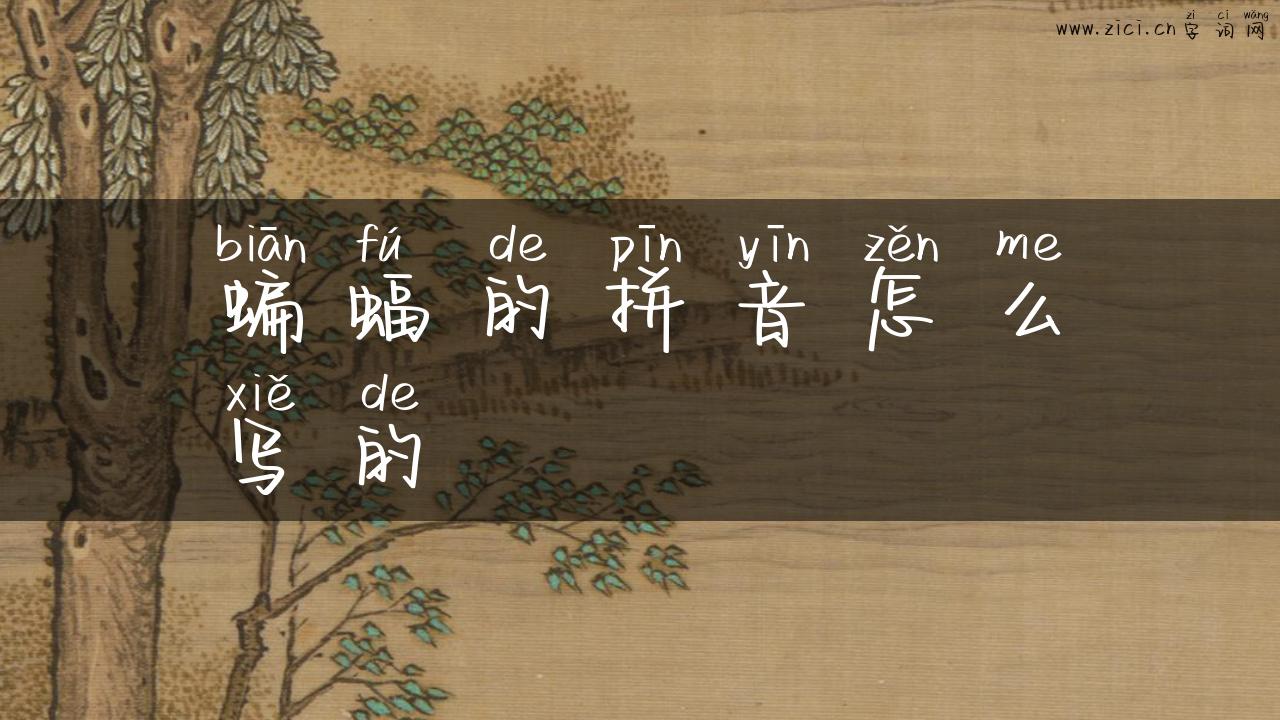 zì cí wǎng
www.zici.cn 字词网
biān fú de pīn yīn zěn me
蝙蝠的拼音怎么
xiě de
写的